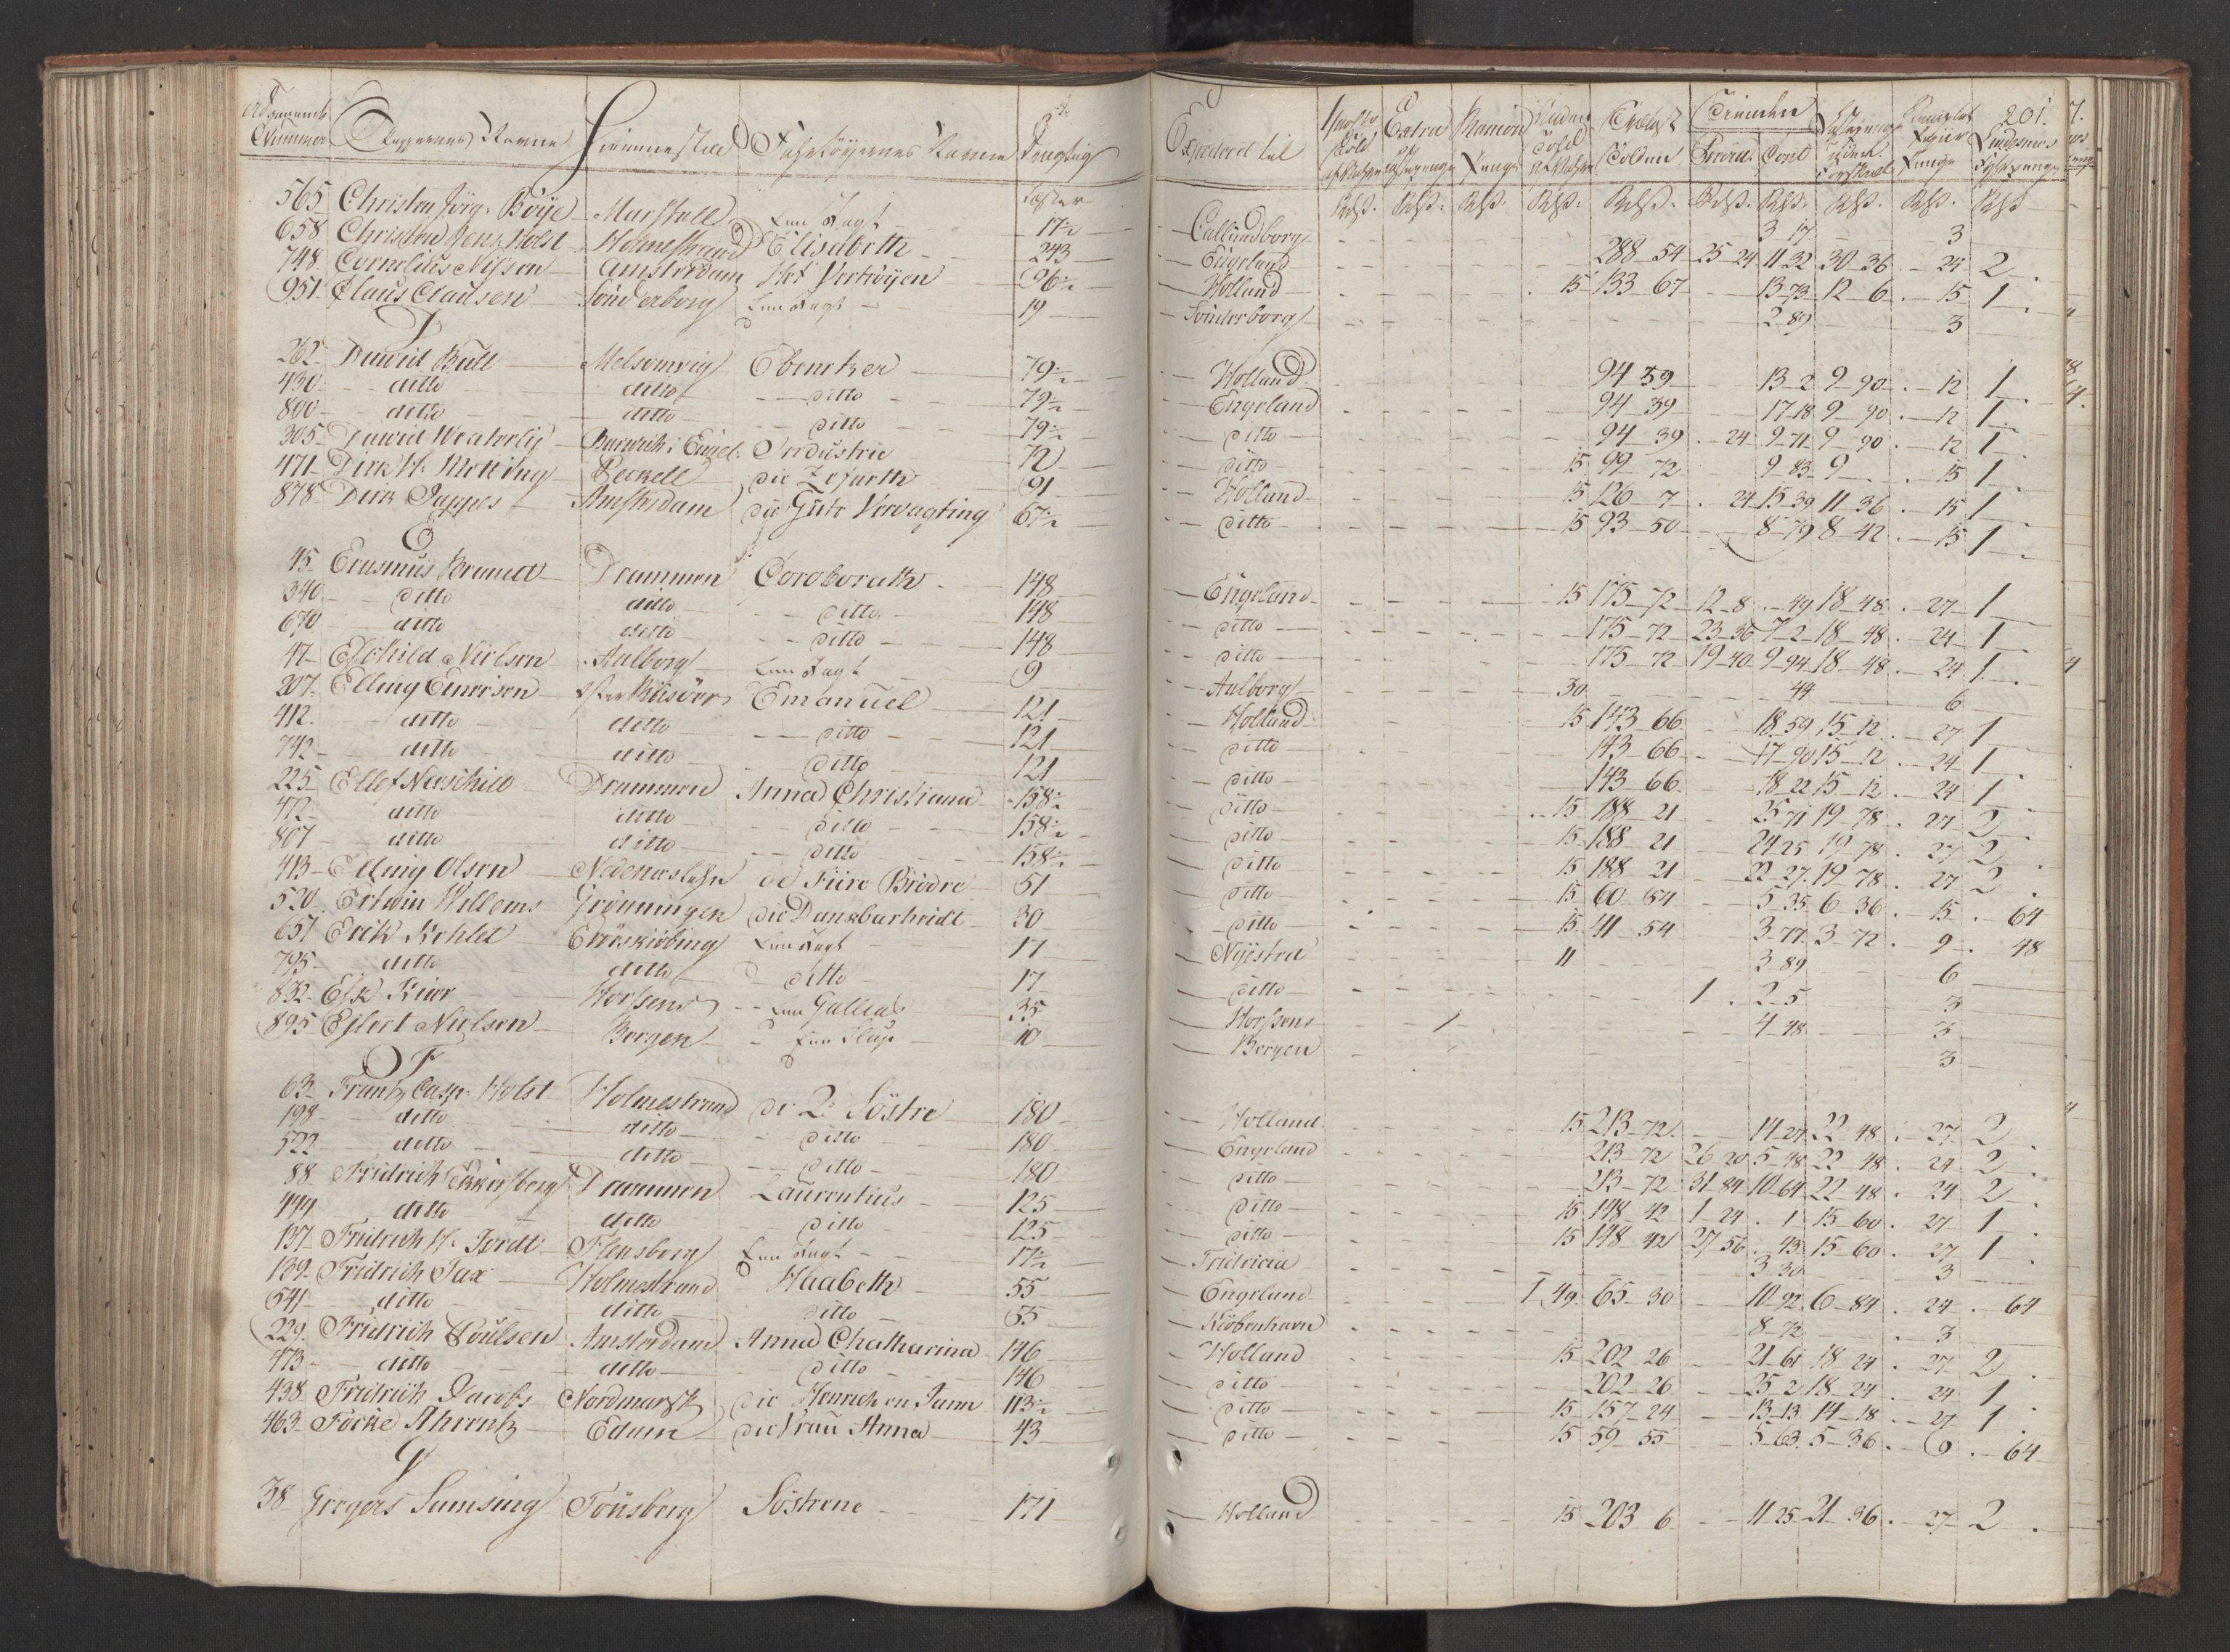 Nummer Skippernes Navne Hiemmestæd Fahrtøyernes Navne Drægtig Expederet til Extra Ramion Penge Told 201.
Læster
565 Christen Jørg. Böije Marstall Een Jagt 17½ Callundborg 3 17 3
658 Christen Jens Holst Holmestrand Elisabeth 243 Engeland 288 54 25 24 11 32 30 36 24 2
748 Cornelius Nilsson Amsterdam Het Vertroÿen 96½ Holland 15 133 67 13 73 12 6 15 1
951 Claus Clausen Sönderborg Een Jagt 19 Sönderborg 2 89 3
D
262 David Bull Melsomvig Ebenetzer 79½ Holland 94 39 13 2 9 90 12 1
430 ditto ditto ditto 79½ Engeland 94 39 17 18 9 90 12 1
800 ditto ditto ditto 79½ ditto 94 39 24 9 71 9 90 12 1
305 David Weaterly Barwich i Engel. Industrie 72 ditto 15 99 72 9 83 9 15 1
471 Dirk H. Motting Peckell die Zefurth 91 Holland 15 126 7 24 15 39 11 36 15 1
878 Dirk Jappes Amsterdam die Gute Verwagting 67½ ditto 15 93 50 8 79 8 42 15 1
E
45 Erasmus Brandt Drammen Coroborath 148 Engeland 15 175 72 12 8 49 18 48 27 1
340 ditto ditto ditto 148 ditto 175 72 23 36 7 2 18 48 24 1
670 ditto ditto ditto 148 ditto 175 72 19 40 9 94 18 48 24 1
47 Eschild Nielsen Aalborg Een Jagt 9 Aalborg 30 44 6
207 Elling Enersen Øster Riisöer Emanuel 121 Holland 15 143 66 18 59 15 12 27 1
412 ditto ditto ditto 121 ditto 143 66 17 90 15 12 24 1
742 ditto ditto ditto 121 ditto 143 66 18 22 15 12 24 1
225 Ellef Naeskild Drammen Anna Christiana 158½ ditto 15 188 21 25 71 19 78 27 2
472 ditto ditto ditto 158½ ditto 15 188 21 24 25 19 78 27 2
807 ditto ditto ditto 158½ ditto 15 188 21 22 27 19 78 27 2
413 Elling Olsen Nedenæslehn de Fiire Brödre 51 ditto 15 60 64 5 35 6 36 15 64
520 Ertwin Willems Grönningen die Dankbarheidt 30 ditto 15 41 54 3 77 3 72 9 48
657 Erik Kehlet Eröeskiöbing Een Jagt 17 Nÿested 11 3 89 6
795 ditto ditto ditto 17 ditto 1 2 5 3
832 Esk Kier Horsens Een Gallias 35 Horsens 1 4 48 3
895 Eilert Nielsen Bergen Een Slup 10 Bergen 3
F
63 Frantz Casp. Holst Holmestrand de 2 Söstre 180 Holland 15 213 72 14 27 22 48 27 2
198 ditto ditto ditto 180 Engeland 213 72 26 20 5 48 22 48 24 2
522 ditto ditto ditto 180 ditto 213 72 31 84 10 64 22 48 24 2
88 Fridrich Eckersberg Drammen Laurentius 125 ditto 15 148 42 1 24 1 15 60 27 1
499 ditto ditto ditto 125 ditto 15 148 42 27 56 43 15 60 27 1
137 Fridrich H. Jordt Flensborg Een Jagt 17½ Fridricia 3 30 3
139 Fridrich Sax Holmestrand Haabeth 55 Engeland 1 49 65 30 10 92 6 84 24 64
541 ditto ditto ditto 55 Kiöbenhavn 8 72 3
229 Fridrich Poulsen Amsterdam Anna Chatharina 146 Holland 15 202 26 21 61 18 24 27 2
473 ditto ditto ditto 146 ditto 202 26 25 2 18 24 24 1
438 Fridrich Jacobs Nordmarsk die Henrich en Jann 113½ ditto 15 157 24 13 13 14 18 27 1
463 Focke Ahrentz Edam die Frau Anna 43 ditto 15 59 55 5 63 5 36 9 64
G
38 Gregers Sumsing Tönsberg Söstrene 171 Holland 15 203 6 11 25 21 36 27 2